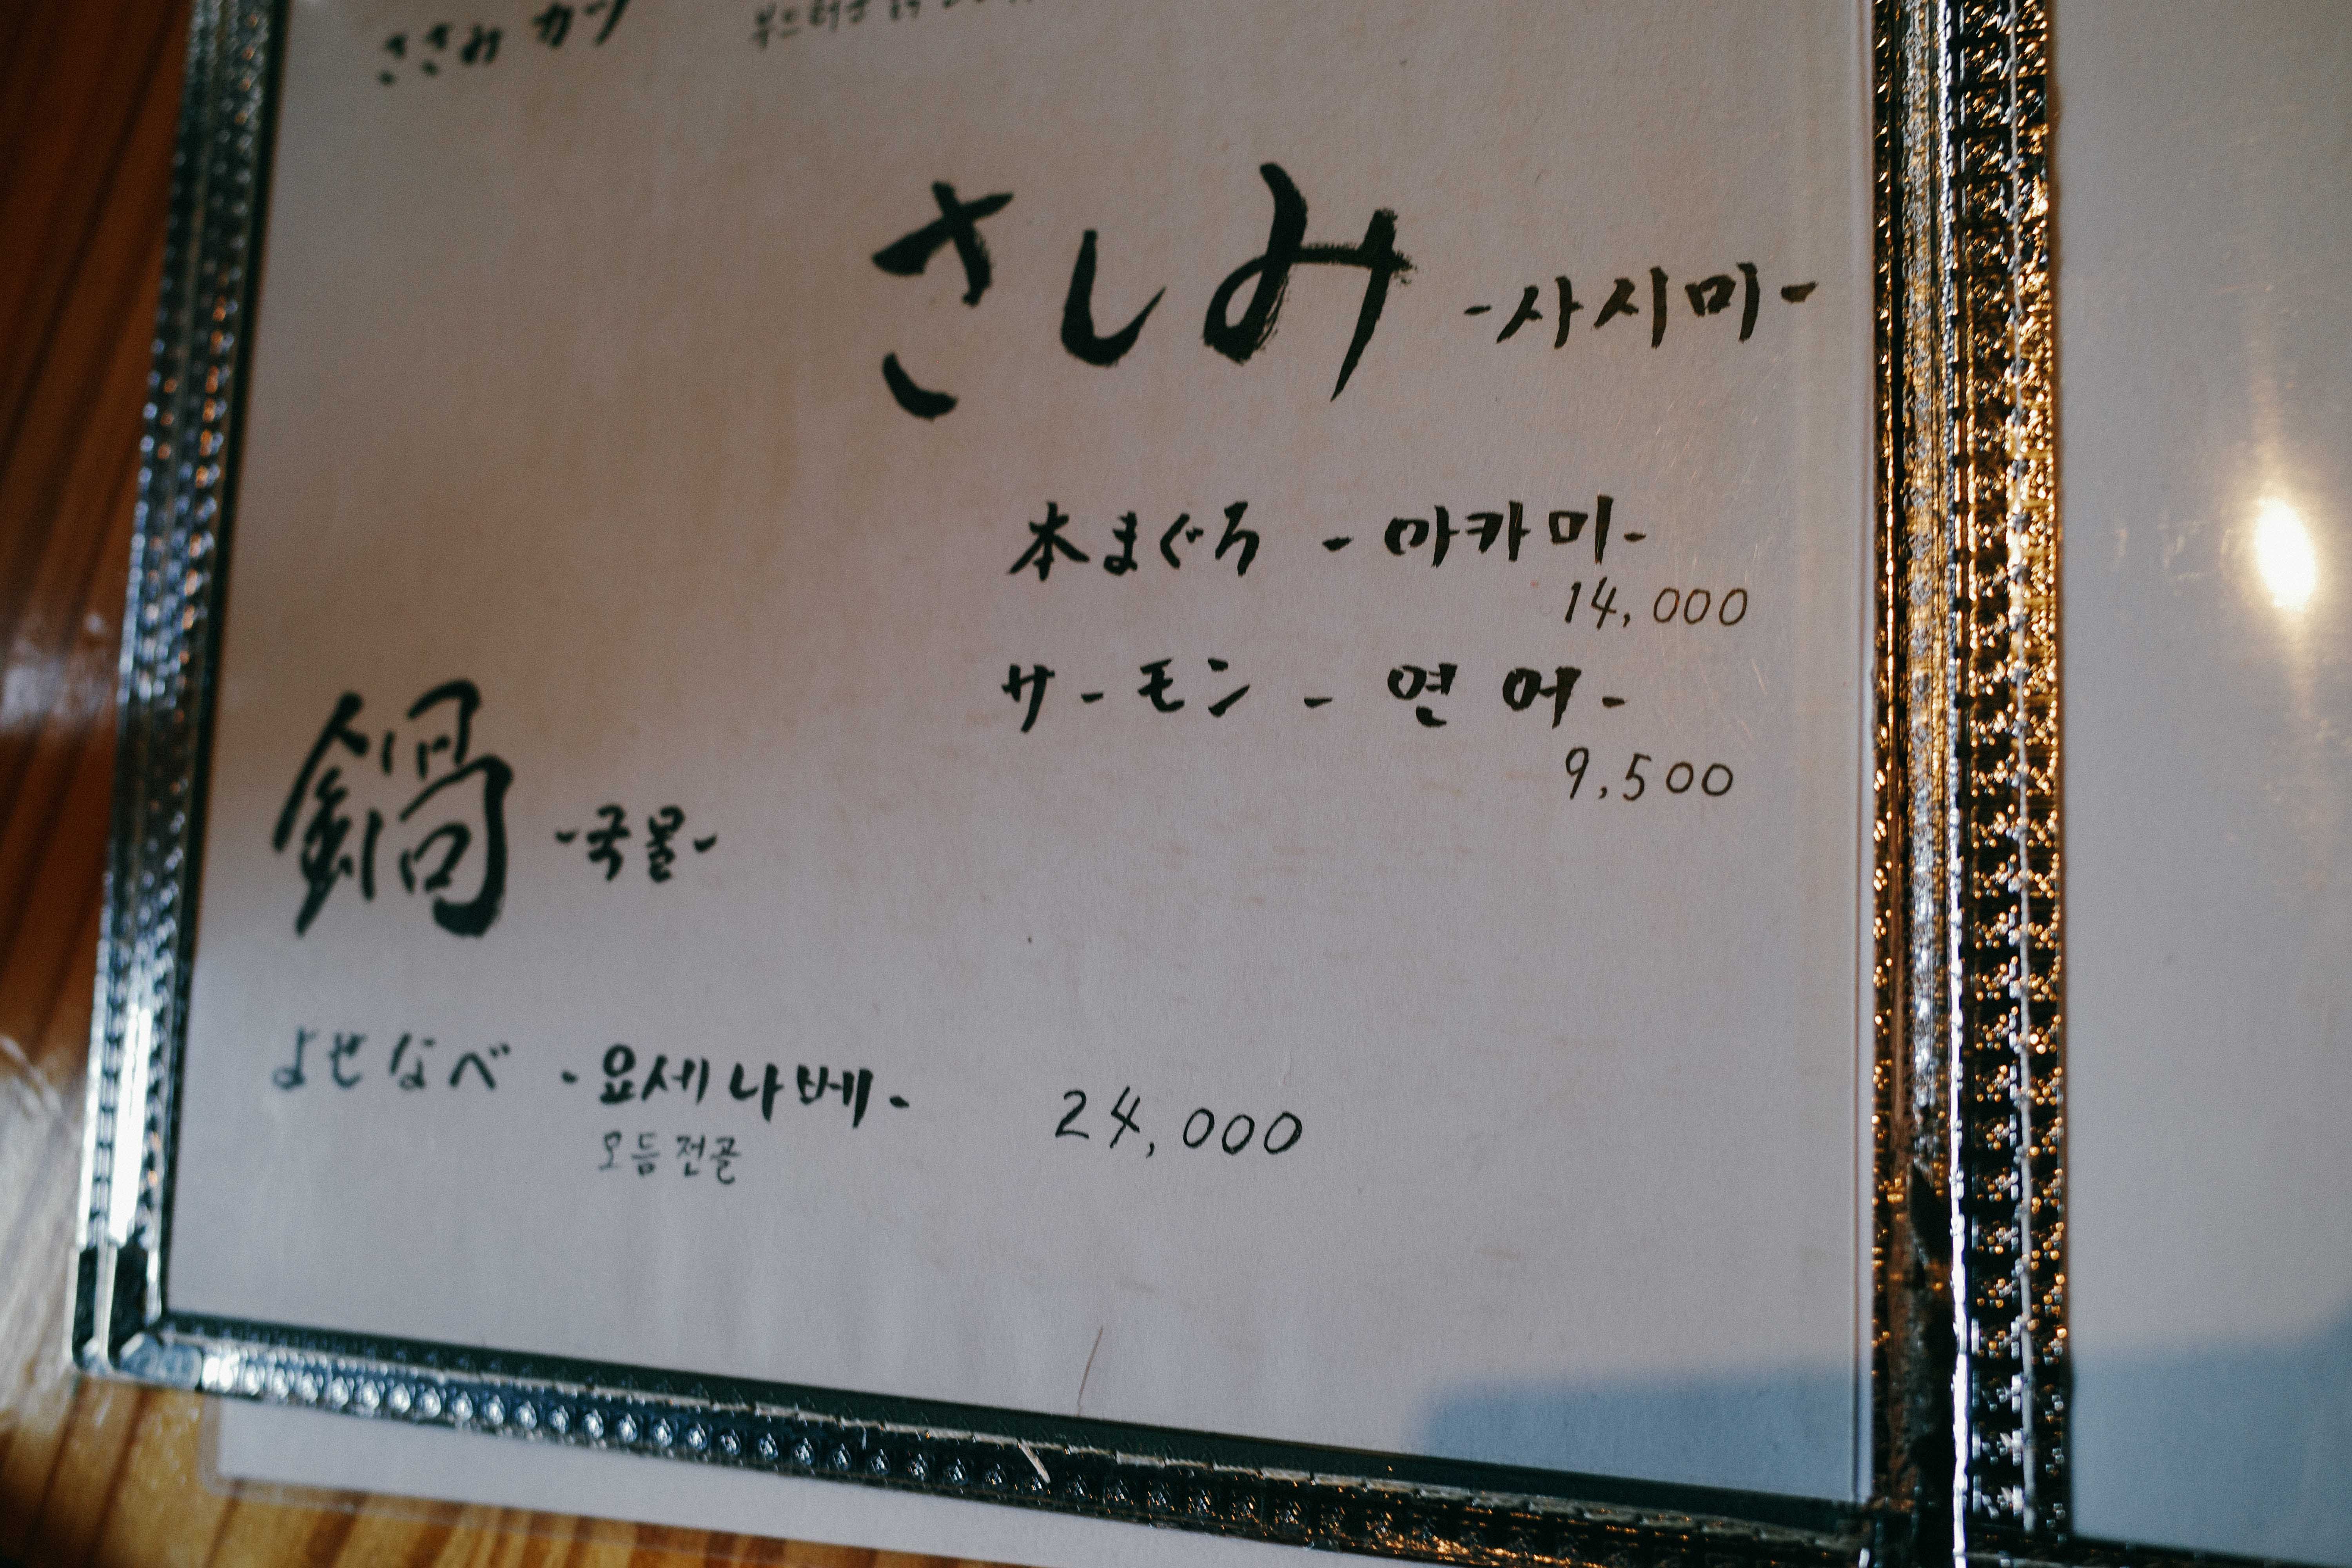 ささみ カツ
さしみ -사시미-
本まぐろ - 아카미-
14,000
サーモン - 연어-
9,500
鍋 -국물-
よせなべ -요세나베- 24,000
모듬전골